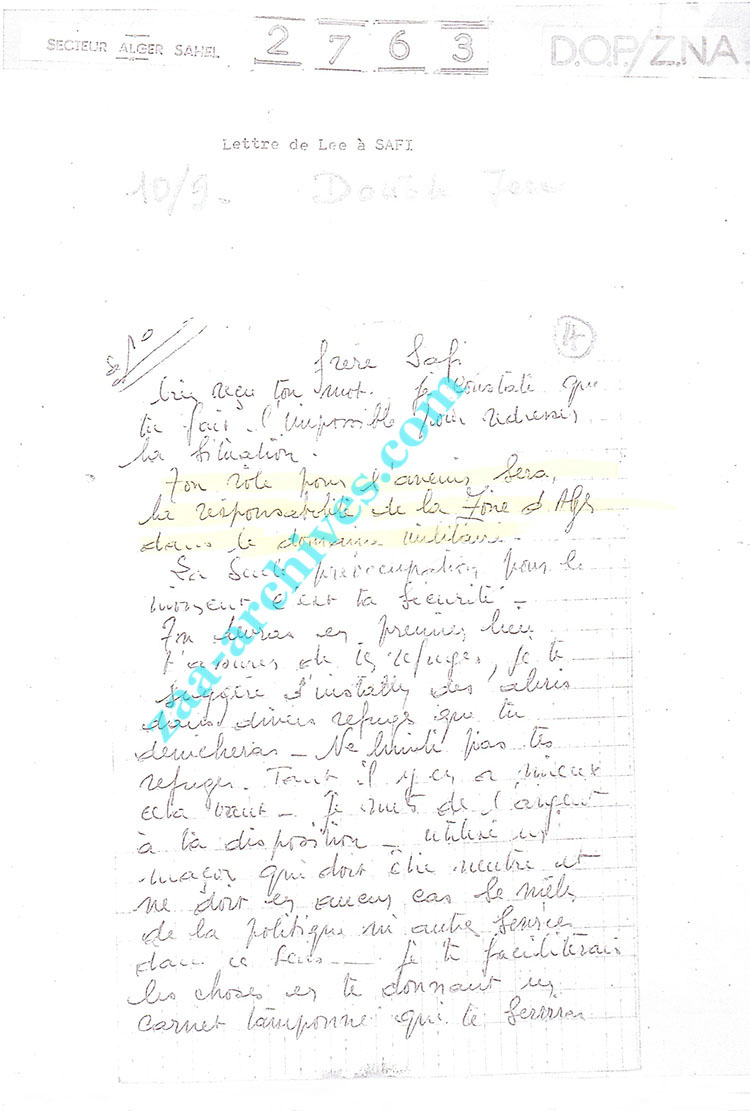 SECTEUR ALGER SAHEL 2 7 6 3 D.O.P/Z.N.A.
Lettre de Lee à SAFI
10/9. Double Jeu
8/10
14
frère Safi
bien reçu ton mot. je constate que
tu fais l'impossible pour redresser
la situation.
Ton rôle pour l'avenir sera,
la responsabilité de la Zone d'Alger
dans le domaine militaire.
La seule préoccupation pour le
moment c'est ta sécurité.
Tu devras en premier lieu
t'assurer de tes refuges, je te
suggère d'installer des abris
dans divers refuge que tu
denicheras - Ne limite pas tes
refuges. Tant il y en a mieux
cela vaut - je mets de l'argent
à ta disposition - utilise un
maçon qui doit être neutre et
ne doit en aucun cas se mêler
de la politique ni autre services
dans ce sens - je te faciliterais
les choses en te donnant un
carnet tamponné qui te servira
zaa-archives.com